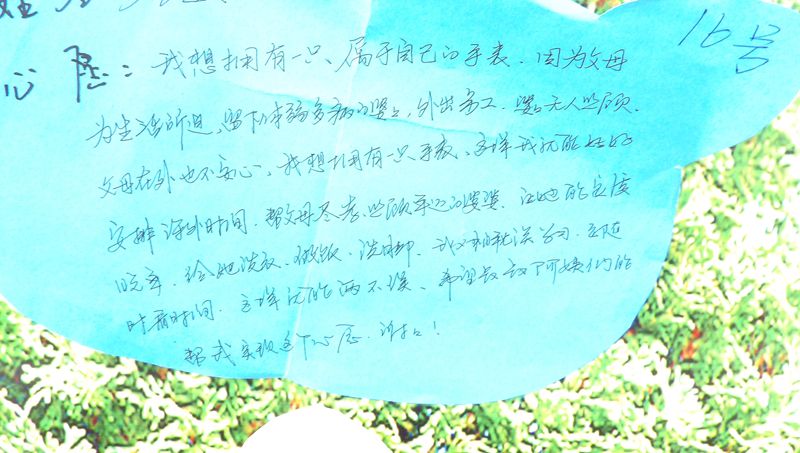 16号
心愿：我想拥有一只属于自己的手表．因为父母
为生活所迫，留下体弱多病的婆婆，外出务工．婆婆无人照顾．
父母在外也不安心．我想拥有一只手表、这样我就能好好
安排课外时间．帮父母尽孝．照顾年迈的婆婆．让她能安度
晚年．给她洗衣、做饭、洗脚．我又能学习
时看时间．这样就能两不误．希望叔叔阿姨们能
帮我实现这个心愿．谢谢！